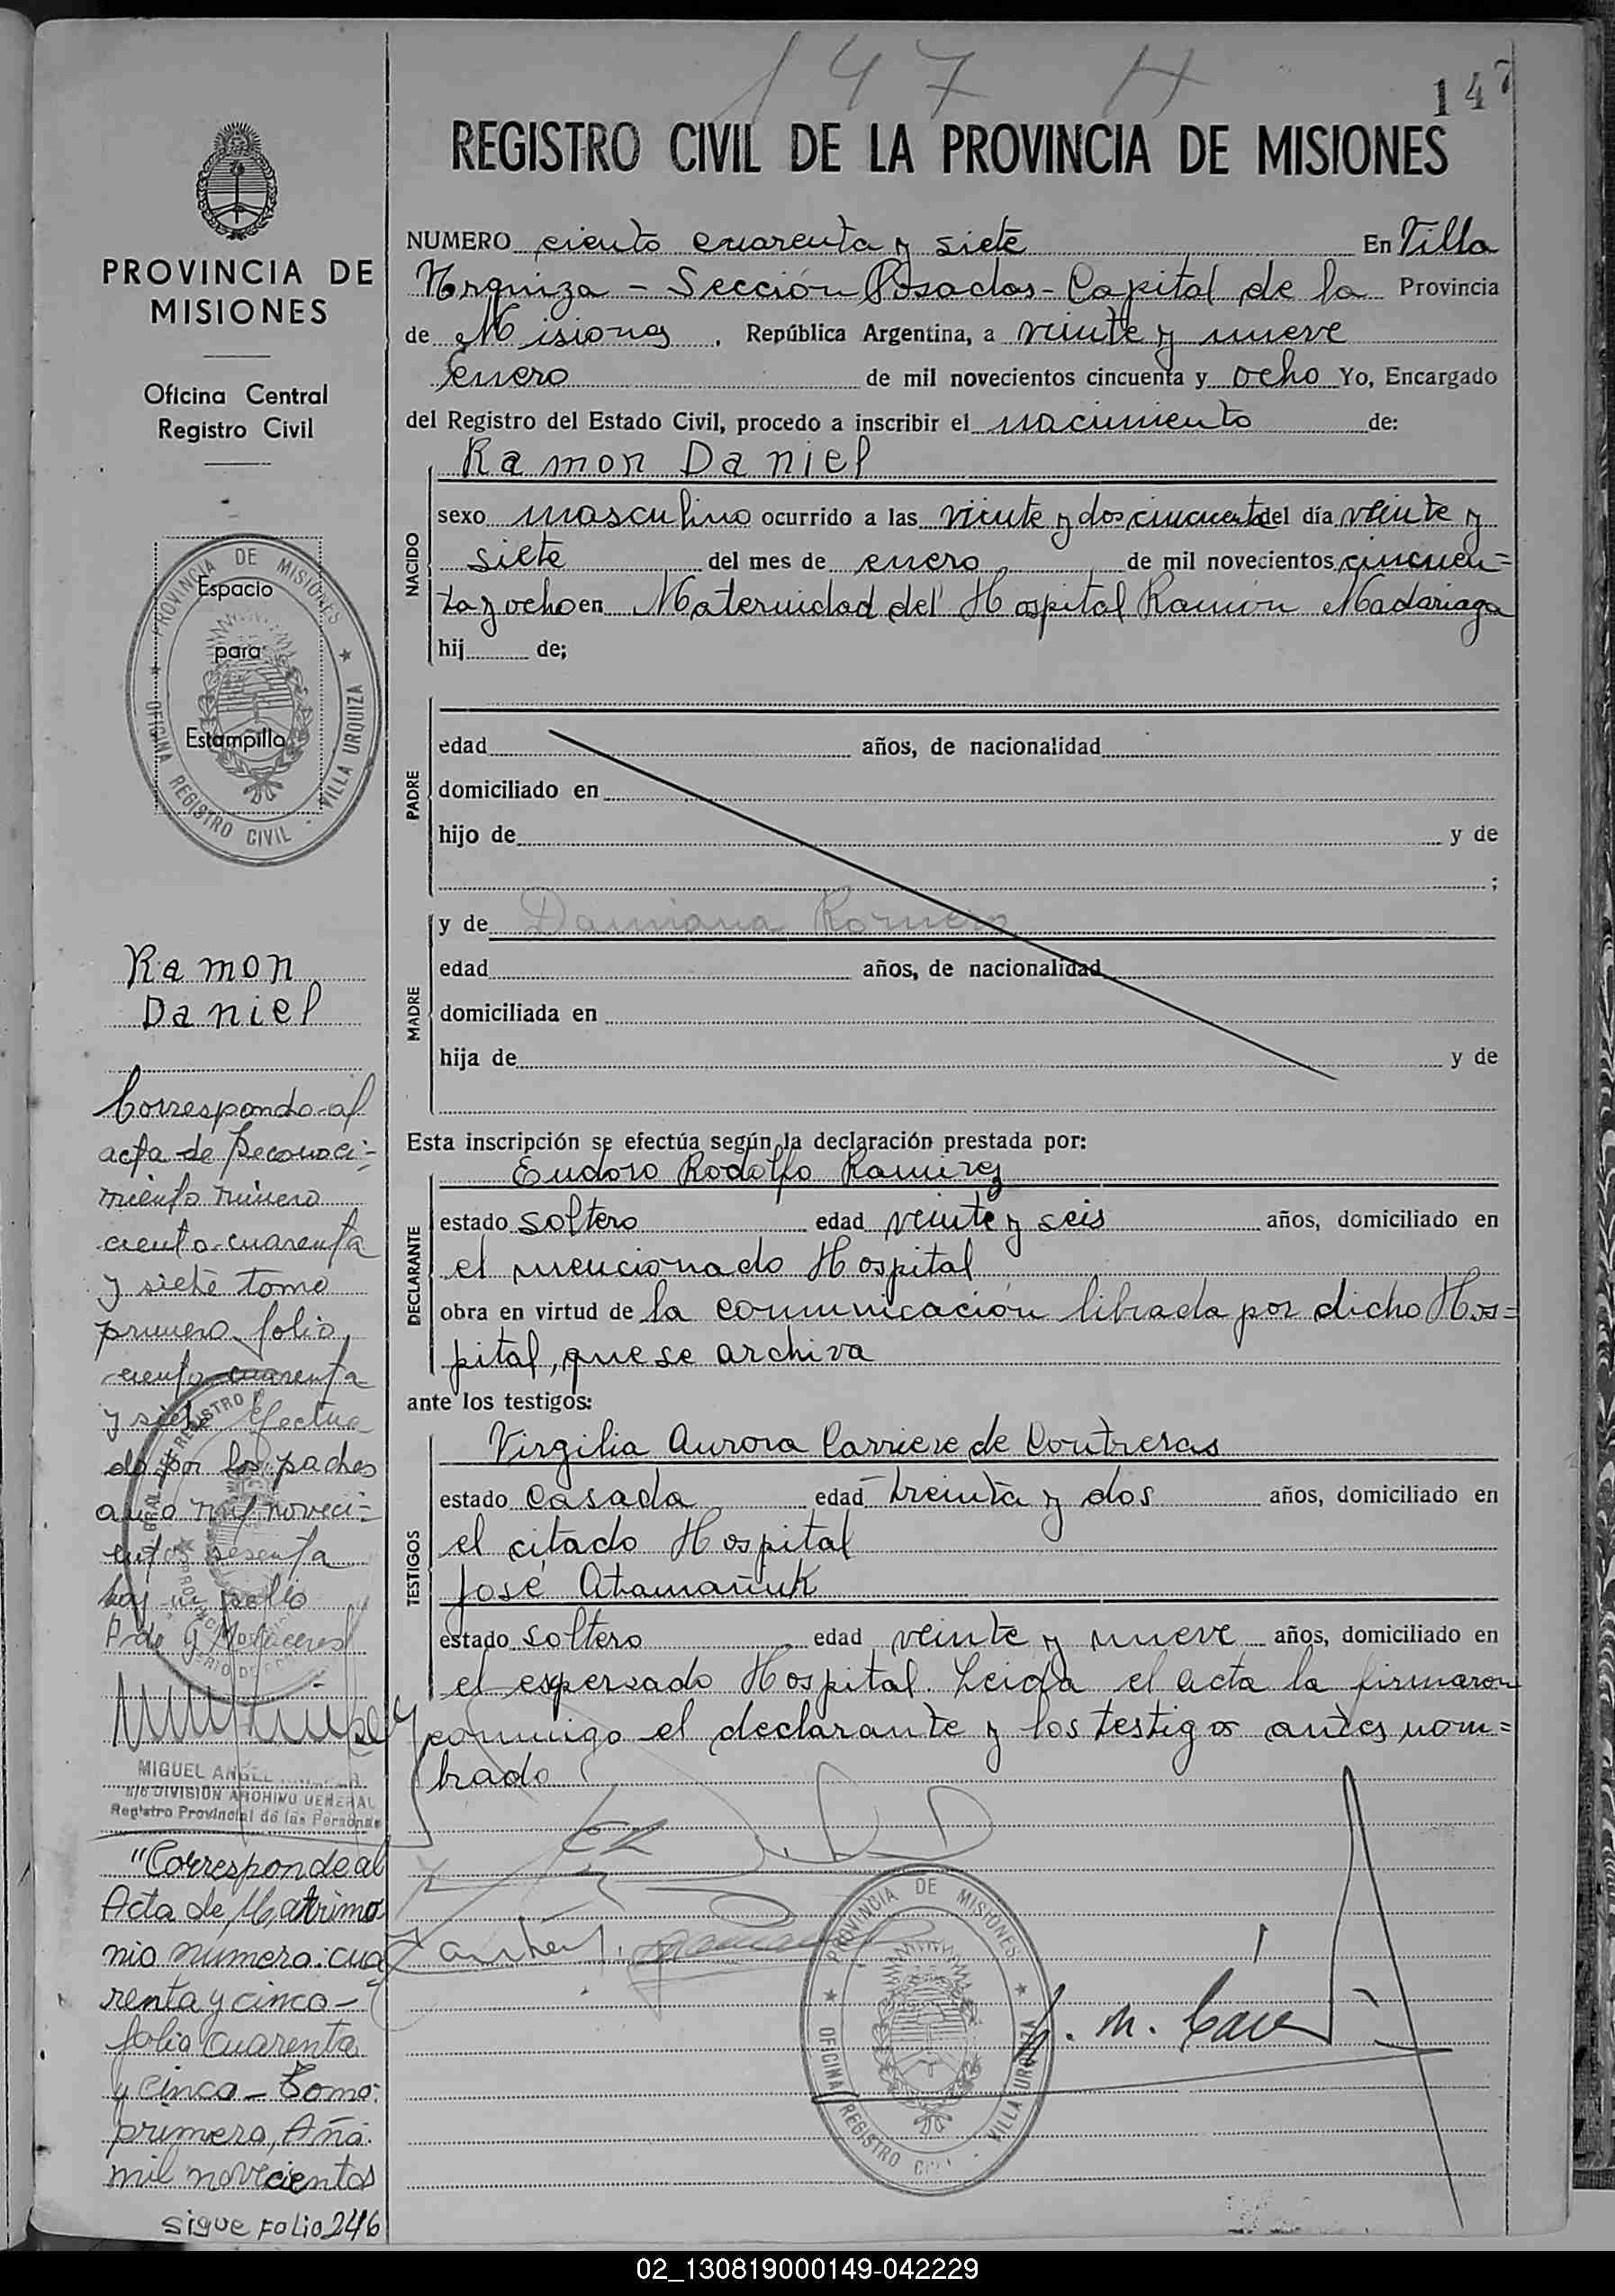 147 H
147
REGISTRO CIVIL DE LA PROVINCIA DE MISIONES
PROVINCIA DE
MISIONES
Oficina Central
Registro Civil
PROVINCIA DE MISIONES
OFICINA REGISTRO CIVIL - VILLA URQUIZA
Espacio
para
Estampilla
Ramon
Daniel
Corresponde al
acta de Reconoci-
miento número
ciento cuarenta
y siete tomo
primero folio
ciento cuarenta
y siete Efectua
do por los padres
año mil noveci-
entos sesenta
MIGUEL ANGEL
DIVISION ARCHIVO GENERAL
Registro Provincial de las Personas
"Corresponde al
Acta de Matrimo
nio numero: cua
renta y cinco -
folio cuarenta
y cinco - Tomo:
primero, Año:
mil novecientos
sigue Folio 246
NUMERO ciento cuarenta y siete En Villa
Urquiza - Sección Posadas - Capital de la Provincia
de Misiones, República Argentina, a veinte y nueve
enero de mil novecientos cincuenta y ocho Yo, Encargado
del Registro del Estado Civil, procedo a inscribir el nacimiento de:
NACIDO
Ramon Daniel
sexo masculino ocurrido a las veinte y dos cincuenta del día veinte y
siete del mes de enero de mil novecientos cincuen=
ta y ocho en Maternidad del Hospital Ramón Madariaga
hij de;
PADRE
edad años, de nacionalidad
domiciliado en
hijo de y de
;
MADRE
y de Damiana Romero
edad años, de nacionalidad
domiciliada en
hija de y de
Esta inscripción se efectúa según la declaración prestada por:
DECLARANTE
Eudoso Rodolfo Ramirez
estado soltero edad veinte y seis años, domiciliado en
el mencionado Hospital
obra en virtud de la comunicación librada por dicho Hos=
pital, que se archiva
ante los testigos:
TESTIGOS
Virgilia Aurora Carriere de Contreras
estado casada edad treinta y dos años, domiciliado en
el citado Hospital
José Atamañuk
estado soltero edad veinte y nueve años, domiciliado en
el expersado Hospital. Leida el acta la firmaron
conmigo el declarante y los testigos antes nom=
brado
PROVINCIA DE MISIONES
OFICINA REGISTRO CIVIL - VILLA URQUIZA
02_130819000149-042229